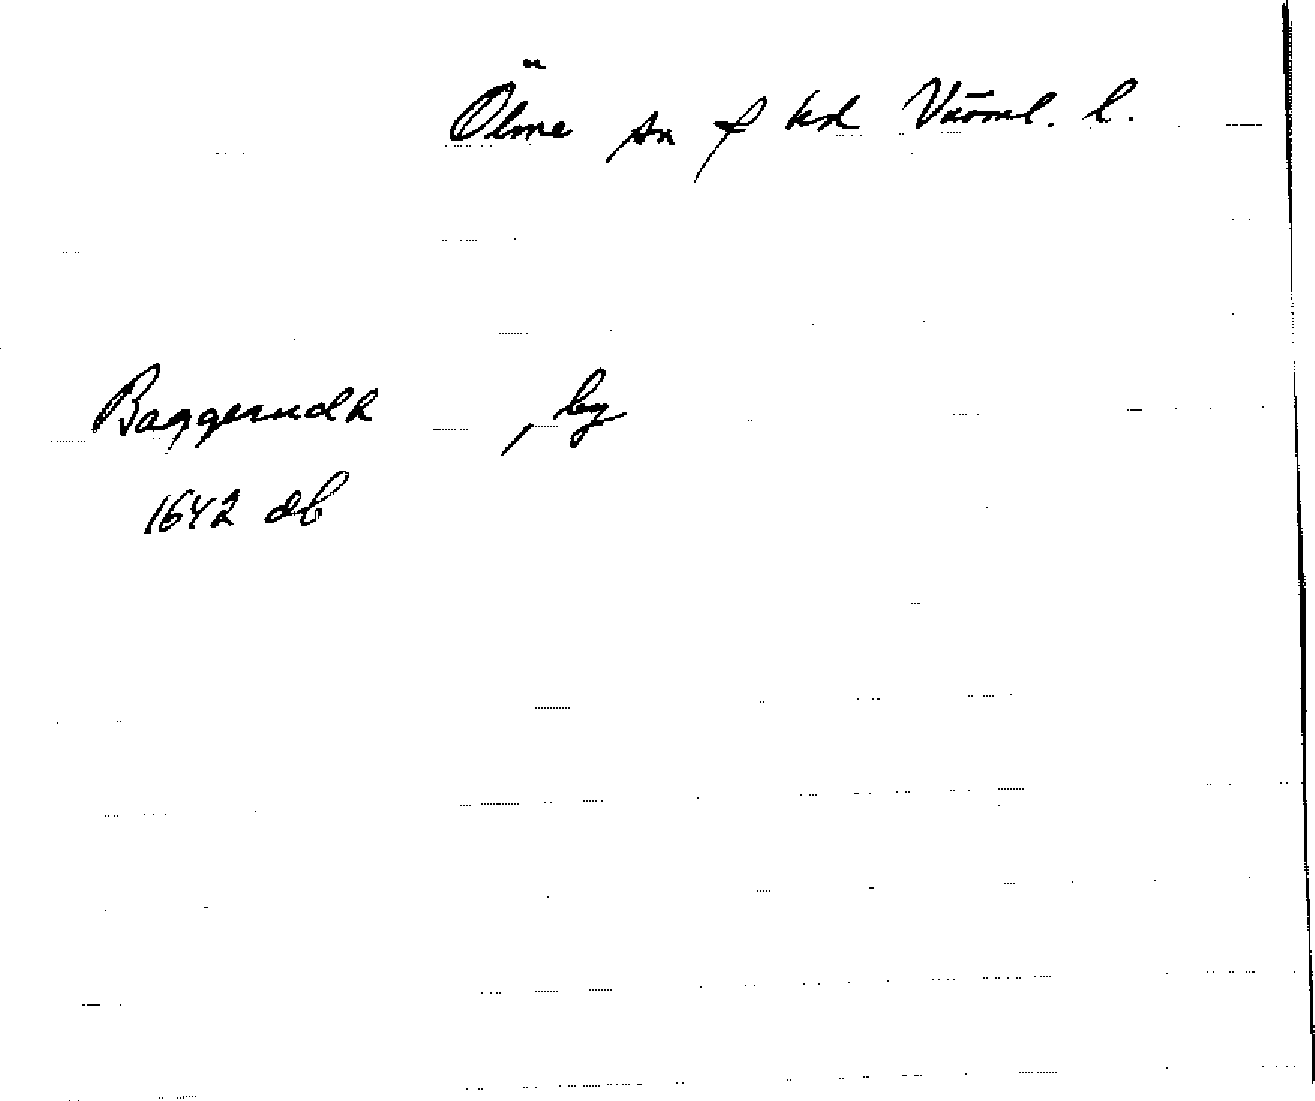 Ölme sn f hd Värml. l.
Baggerudh , by
1642 db